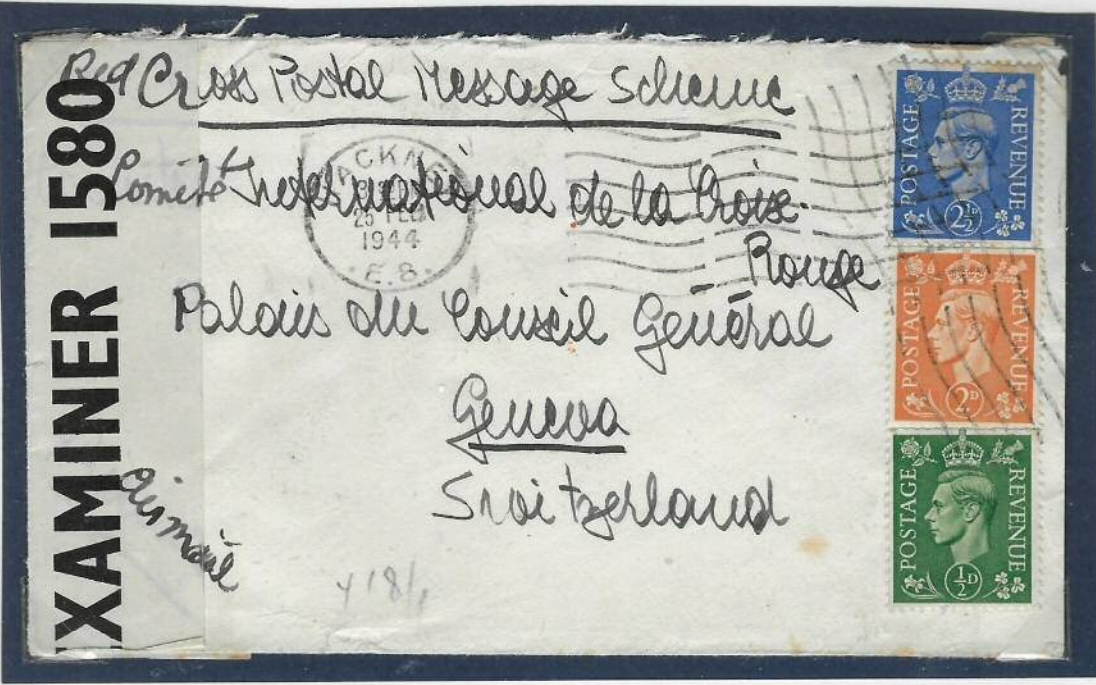 EXAMINER 1580
Red Cross Postal Message Scheme
Comité International de la Croix-
Rouge
Palais du Conseil Général
Geneva
Switzerland
Air mail
HACKNEY
25 FEB
1944
E.8.
POSTAGE REVENUE
2½D
POSTAGE REVENUE
2D
POSTAGE REVENUE
½D